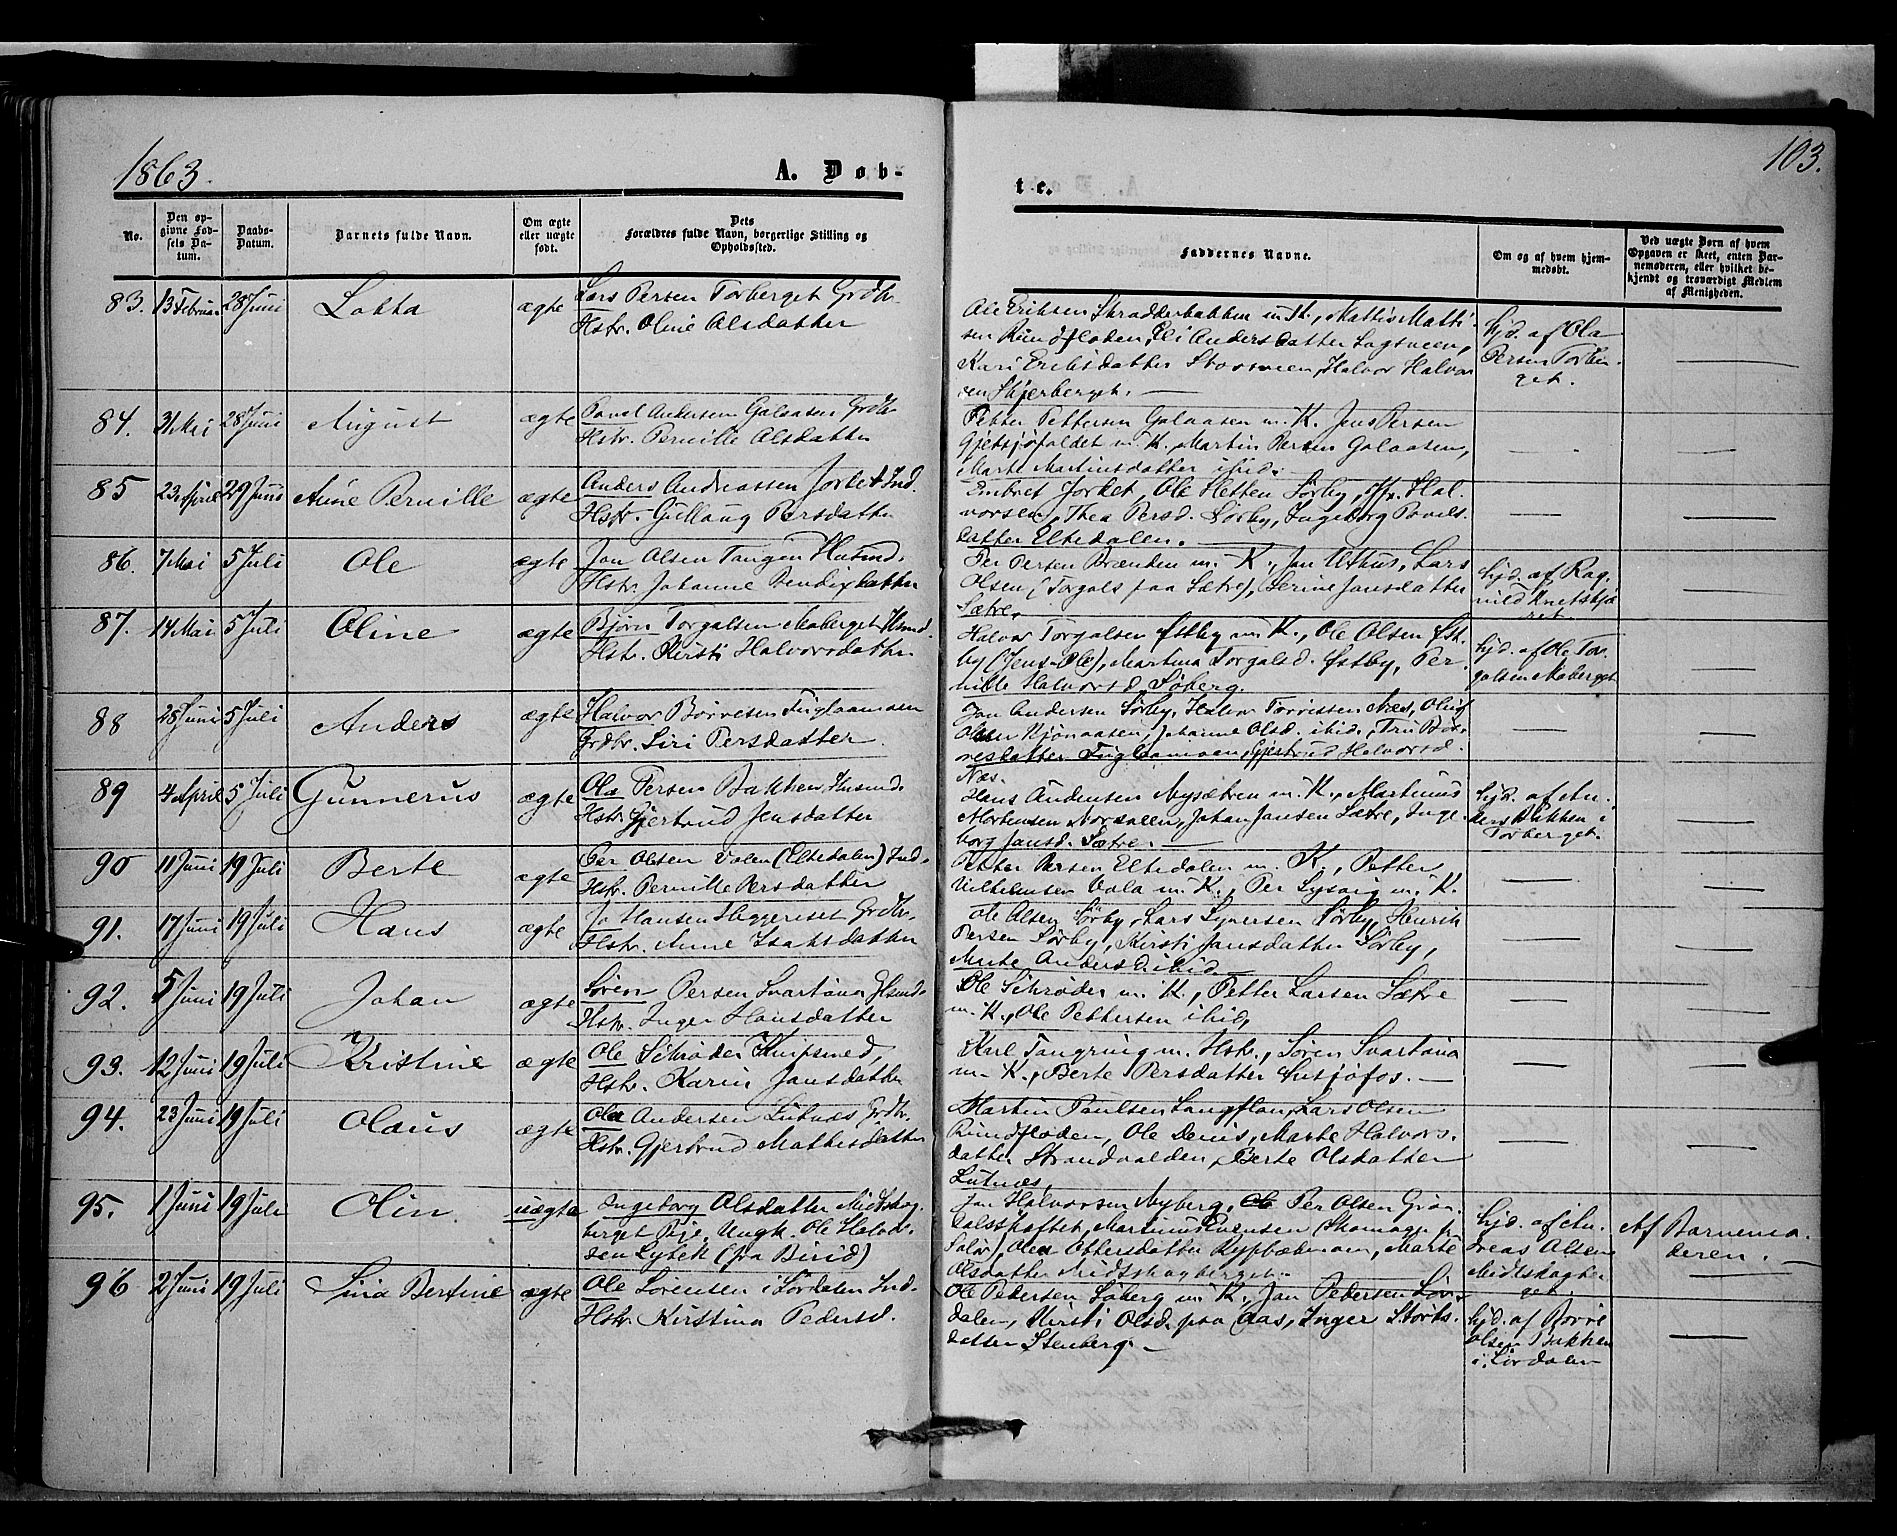 1863.
A. Døb-
te.
103.
No.
Den op-
givne Fød-
sels Da-
tum.
Daabs-
Datum.
Barnets fulde Navn.
Om ægte
eller uægte
født.
Dets
Forældres fulde Navn, borgerlige Stilling og
Opholdssted.
Faddernes Navne.
Om og af hvem hjem-
medøbt.
Ved uægte Børn af hvem
Opgaven er skeet, enten Bar-
nemoderen, eller hvilket be-
kjendt og troværdigt Medlem
af Menigheden.
83. 13 Februar 28 Juni Lotta ægte Lars Persen Torberget Grdbr.
Hstr. Oline Olsdatter
Ole Eriksen Skradderbakken m. K., Mattis Matti-
sen Rundfloden, Eli Andersdatter Lagsveen,
Kari Eriksdatter Storveen, Halvor Halvor
sen Skjerberget. —
hjd. af Ola
Persen Torber
get.
84. 31 Mai 28 Juni August ægte Povel Andersen Galaasen Grdbr.
Hstr. Pernille Olsdatter
Petter Pettersen Galaasen m. K. Jens Persen
Gjetsjøfaldet m. K., Martin Persen Galaasen,
Marte Martinsdatter ibid. —
85 23 April 29 Juni Anne Pernille ægte Anders Andreassen Jorket Ind.
Hstr. Gullaug Persdatter
Embret Jorket, Ole Sletten Sørby, Hal-
vorsen, Thea Persd. Sørby, Ingeborg Povels-
datter Eltedalen. —
86. 7 Mai 5 Juli Ole ægte Jon Olsen Tangen Husmd.
Hstr. Johanne Bendixdatter
Per Persen Brænden m. K., Jon Uthus, Lars
Olsen, (Torgals paa Sætre), Serine Jansdatter
Sætre.
hjd. af Rag-
nild Knetskjæ
ret.
87. 14 Mai 5 Juli Oline ægte Bjørn Torgalsen Moberget Husmd.
Hstr. Kirsti Halvorsdatter
Halvor Torgalsen Østby m. K., Ole Olsen Øst-
by (Jens-Ole), Martina Torgalsd. Østby, Per-
nille Halvorsd. Søberg.
hjd. af Ole Tor-
galsen Moberget
88 28 Juni 5 Juli Anders ægte Halvor Børresen Fuglaamoen
Grdbr. Siri Persdatter
Jon Andersen Sørby, Halvor Torrissen Næs, Oluf
Olsen Kjønaasen, Johanne Olsd. ibid., Tru Bør-
resdatter Fuglaamoen, Gjertrud Halvorsd.
Næs.
89 4 April 5 Juli Gunnerus ægte Ola Persen Bakken, Husmd.
Hstr. Gjertrud Jensdatter
Hans Andersen Nysætren m. K., Martinus
Mortensen Nordveen, Johan Jansen Sætre, Inge-
borg Jansd. Sætre. —
hjd. af An-
ders Bakken i
Torberget.
90 11 Juni 19 Juli Berte ægte Per Olsen Volen (Eltedalen) Ind.
Hstr. Pernille Persdatter
Petter Persen Eltedalen m. K., Petter
Vilhelmsen Vola m. K., Per Lysvig m. K.
91. 17 Juni 19 Juli Hans ægte Jo Hansen Heggeriset Grdbr.
Hstr. Anne Isaksdatter
Ole Olsen Sørby, Lars Syversen Sørby, Henrik
Persen Sørby, Kirsti Jansdatter Sørby,
Marte Andersd. ibid.
92. 5 Juni 19 Juli Johan ægte Søren Persen Svartaaen Husmd.
Hstr. Inger Hansdatter
Ole Schrøder m. K., Petter Larsen Sætre
m. K., Ole Pettersen ibid.
93. 12 Juni 19 Juli Kristine ægte Ole Schrøder Knipsmed,
Hstr. Karin Jansdatter
Karl Tangring m. Hstr., Søren Svartaaen
m. K., Berte Persdatter Lutsjøfos. —
94. 23 Juni 19 Juli Olaus ægte Ola Andersen Lutnæs Grdbr.
Hstr. Gjertrud Mathisdatter
Martin Paulsen Langflon, Lars Olsen
Rundfloden, Ole Denis, Marte Halvors-
datter Strandvolden, Berte Olsdatter
Lutnæs.
95. 1 Juni 19 Juli Olin. uægte Ingeborg Olsdatter Midtskog-
berget Pige, Ungk. Ole Halvor-
sen Lybek (fra Birid)
Jon Halvorsen Nyberg, Per Olsen Grøn-
dalsskaftet, Martinus Evensen Skomager fr.
Solør, Olea Ottersdatter, Marte
Olsdatter Midtskogberget. —
hjd. af An-
dreas Olsen
Midtskogber
get.
Af Barnemo-
deren. —
96 2 Juni 19 Juli Sina Bertine ægte Ole Sørensen i Lørdalen Ind.
Hstr. Kirstina Pedersd.
Ole Pedersen Søberg m. K., Jan Pedersen Lør-
dalen, Kirsti Olsd. paa Aas, Inger Størks-
datter Stenberg. —
hjd. af Børre
Olsen Bakken
i Lørdalen